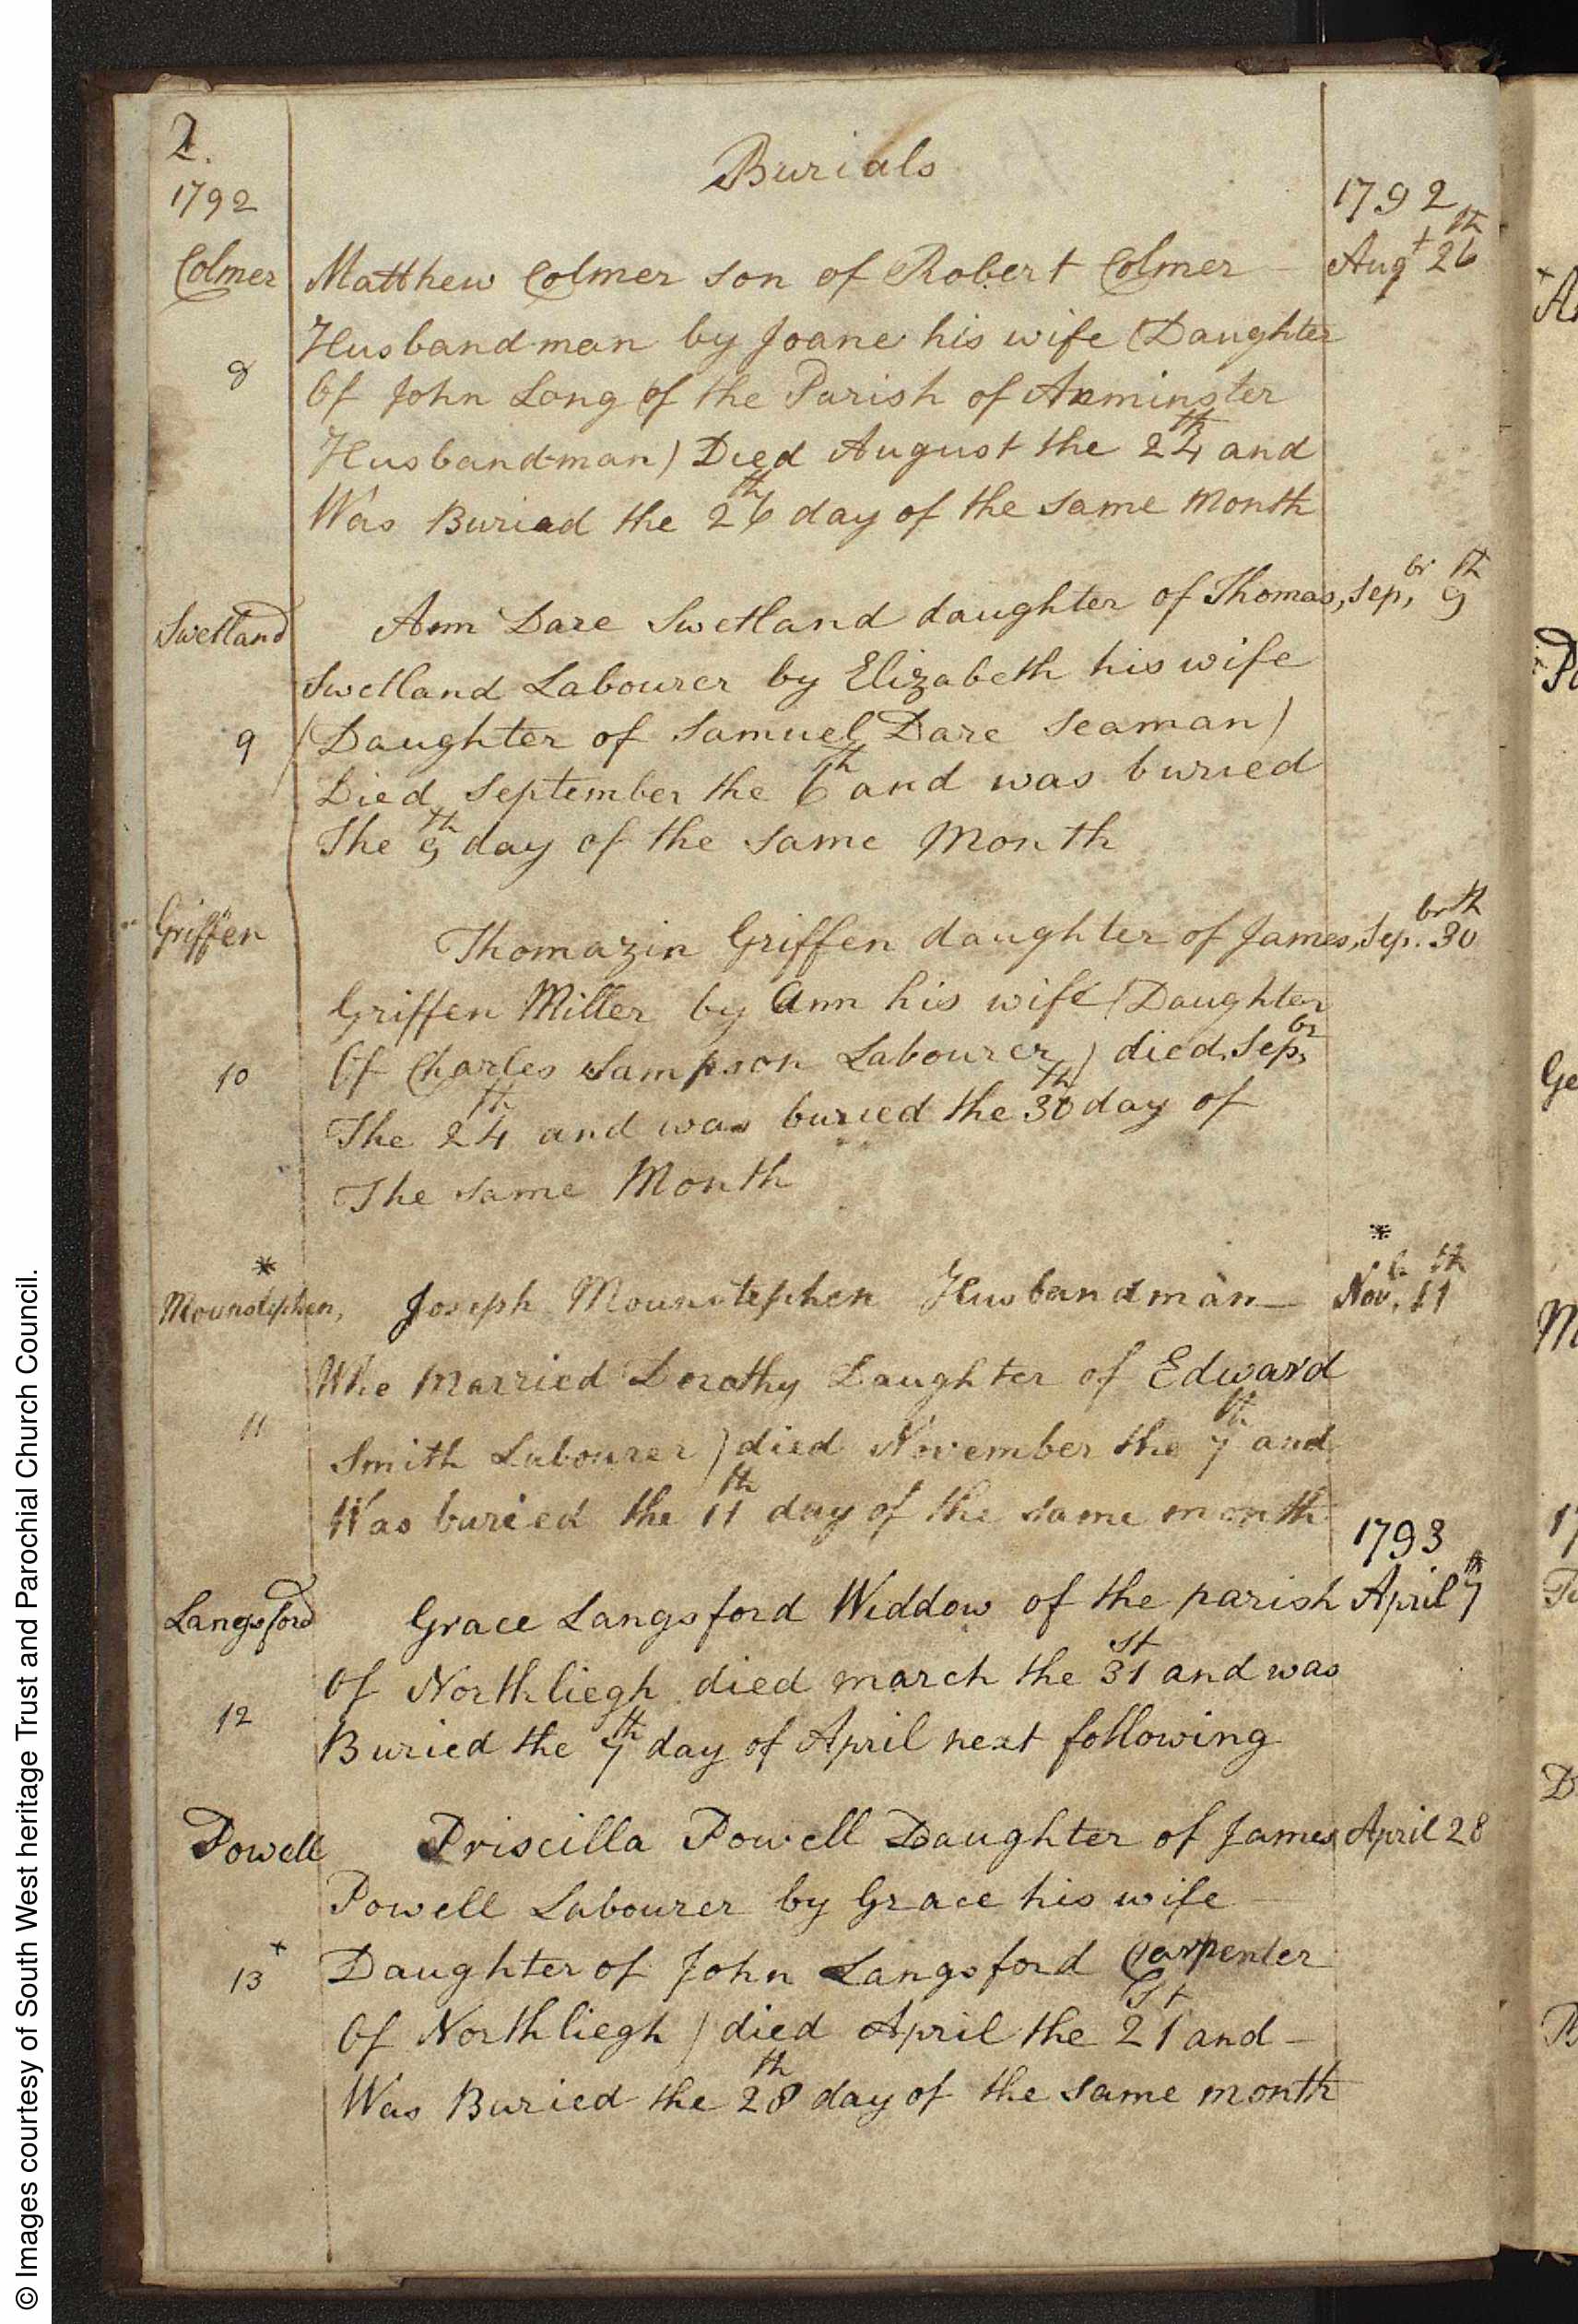 2.
Burials
1792
1792
Colmer Matthew Colmer son of Robert Colmer – Augt 26th
Husbandman by Joane his wife (Daughter
8
Of John Long of the Parish of Axminster
Husbandman) Died August the 24th and
Was Buried the 26th day of the same Month
Swetland Ann Dare Swetland daughter of Thomas, Sepbr, 9th
Swetland Labourer by Elizabeth his wife
9 (Daughter of Samuel Dare Seaman)
Died September the 6th and was buried
The 9th day of the same Month
Griffen Thomazin Griffen daughter of James, Sepbr. 30th
Griffen Miller by Ann his wife (Daughter
10 Of Charles Sampson Labourer) died Sepbr,
The 24th and was buried the 30th day of
The same Month
* *
Mounstephen, Joseph Mounstephen Husbandman – Novb, 11th
Who Married Dorothy Daughter of Edward
11 Smith Labourer) died November the 7th and
Was buried the 11th day of the same month
1793
Langsford Grace Langsford Widdow of the parish April 7th
Of Northliegh died march the 31st and was
12 Buried the 7th day of April next following
Powell Priscilla Powell Daughter of James April 28
Powell Labourer by Grace his wife –
13 + Daughter of John Langsford Carpenter
Of Northliegh) died April the 21st and –
Was Buried the 28th day of the same month
© Images courtesy of South West heritage Trust and Parochial Church Council.